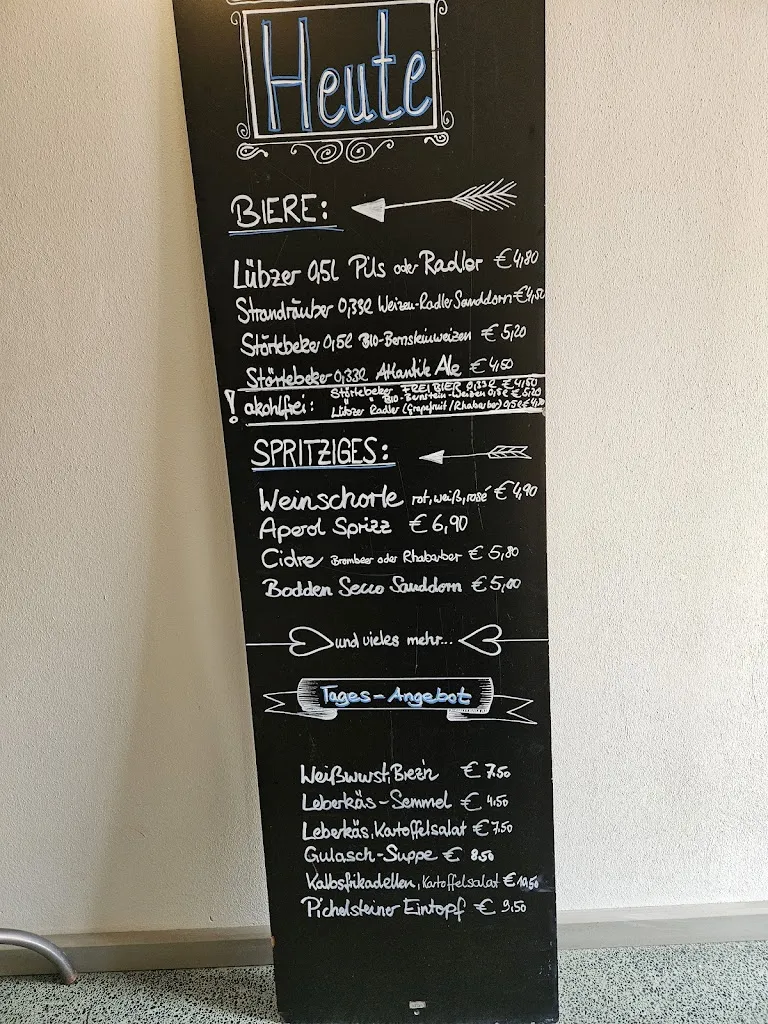 Heute
BIERE:
Lübzer 0,5l Pils oder Radler €4,80
Strandräuber 0,33l Weizen-Radler Sanddorn €4,50
Störtebeker 0,5l BIO-Bernsteinweizen € 5,20
Störtebeker 0,33l Atlantik Ale €4,60
! akohlfrei:
Störtebeker FREIBIER 0,33l €4,60
BIO-Bernstein-Weizen 0,5l €5,20
Lübzer Radler (Grapefruit/Rhabarber) 0,5l
SPRITZIGES:
Weinschorle rot, weiß, rosé €4,90
Aperol Sprizz €6,90
Cidre Brombeer oder Rhabarber €5,80
Bodden Secco Sanddorn €5,00
und vieles mehr...
Tages-Angebot
Weißwurst, Brez'n € 7.50
Leberkäs-Semmel € 4.50
Leberkäs, Kartoffelsalat € 7.50
Gulasch-Suppe € 8.50
Kalbsfrikadellen, Kartoffelsalat €
Pichelsteiner Eintopf € 9.50